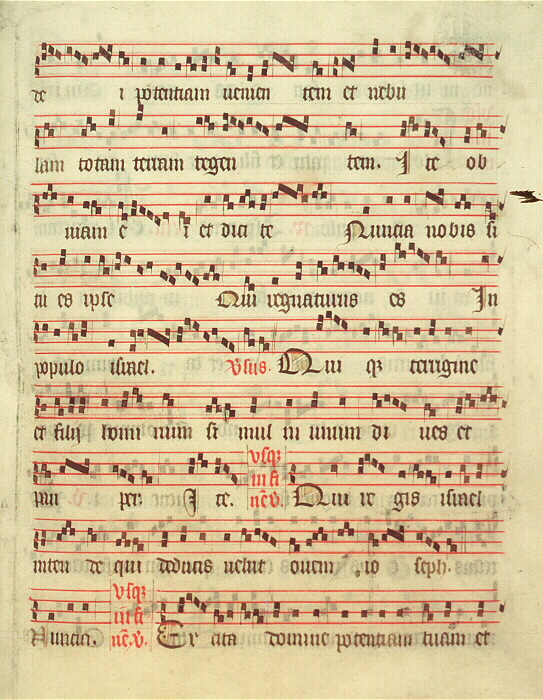 de i potentiam uenien tem et nebu
lam totam terram tegen tem. I te ob
uiam e i et dici te Nuncia nobis si
tu es ipse Qui regnaturus es In
populo israel. Vsus. Qui q terrigine
et filij homi num si mul in unum di ues et
pau per I te. vsq in fi nē v. Qui re gis israel
inten de qui deducis uelut ouem io seph.
Nuncia. vsq in fi nē v. Ex cita domine potentiam tuam et